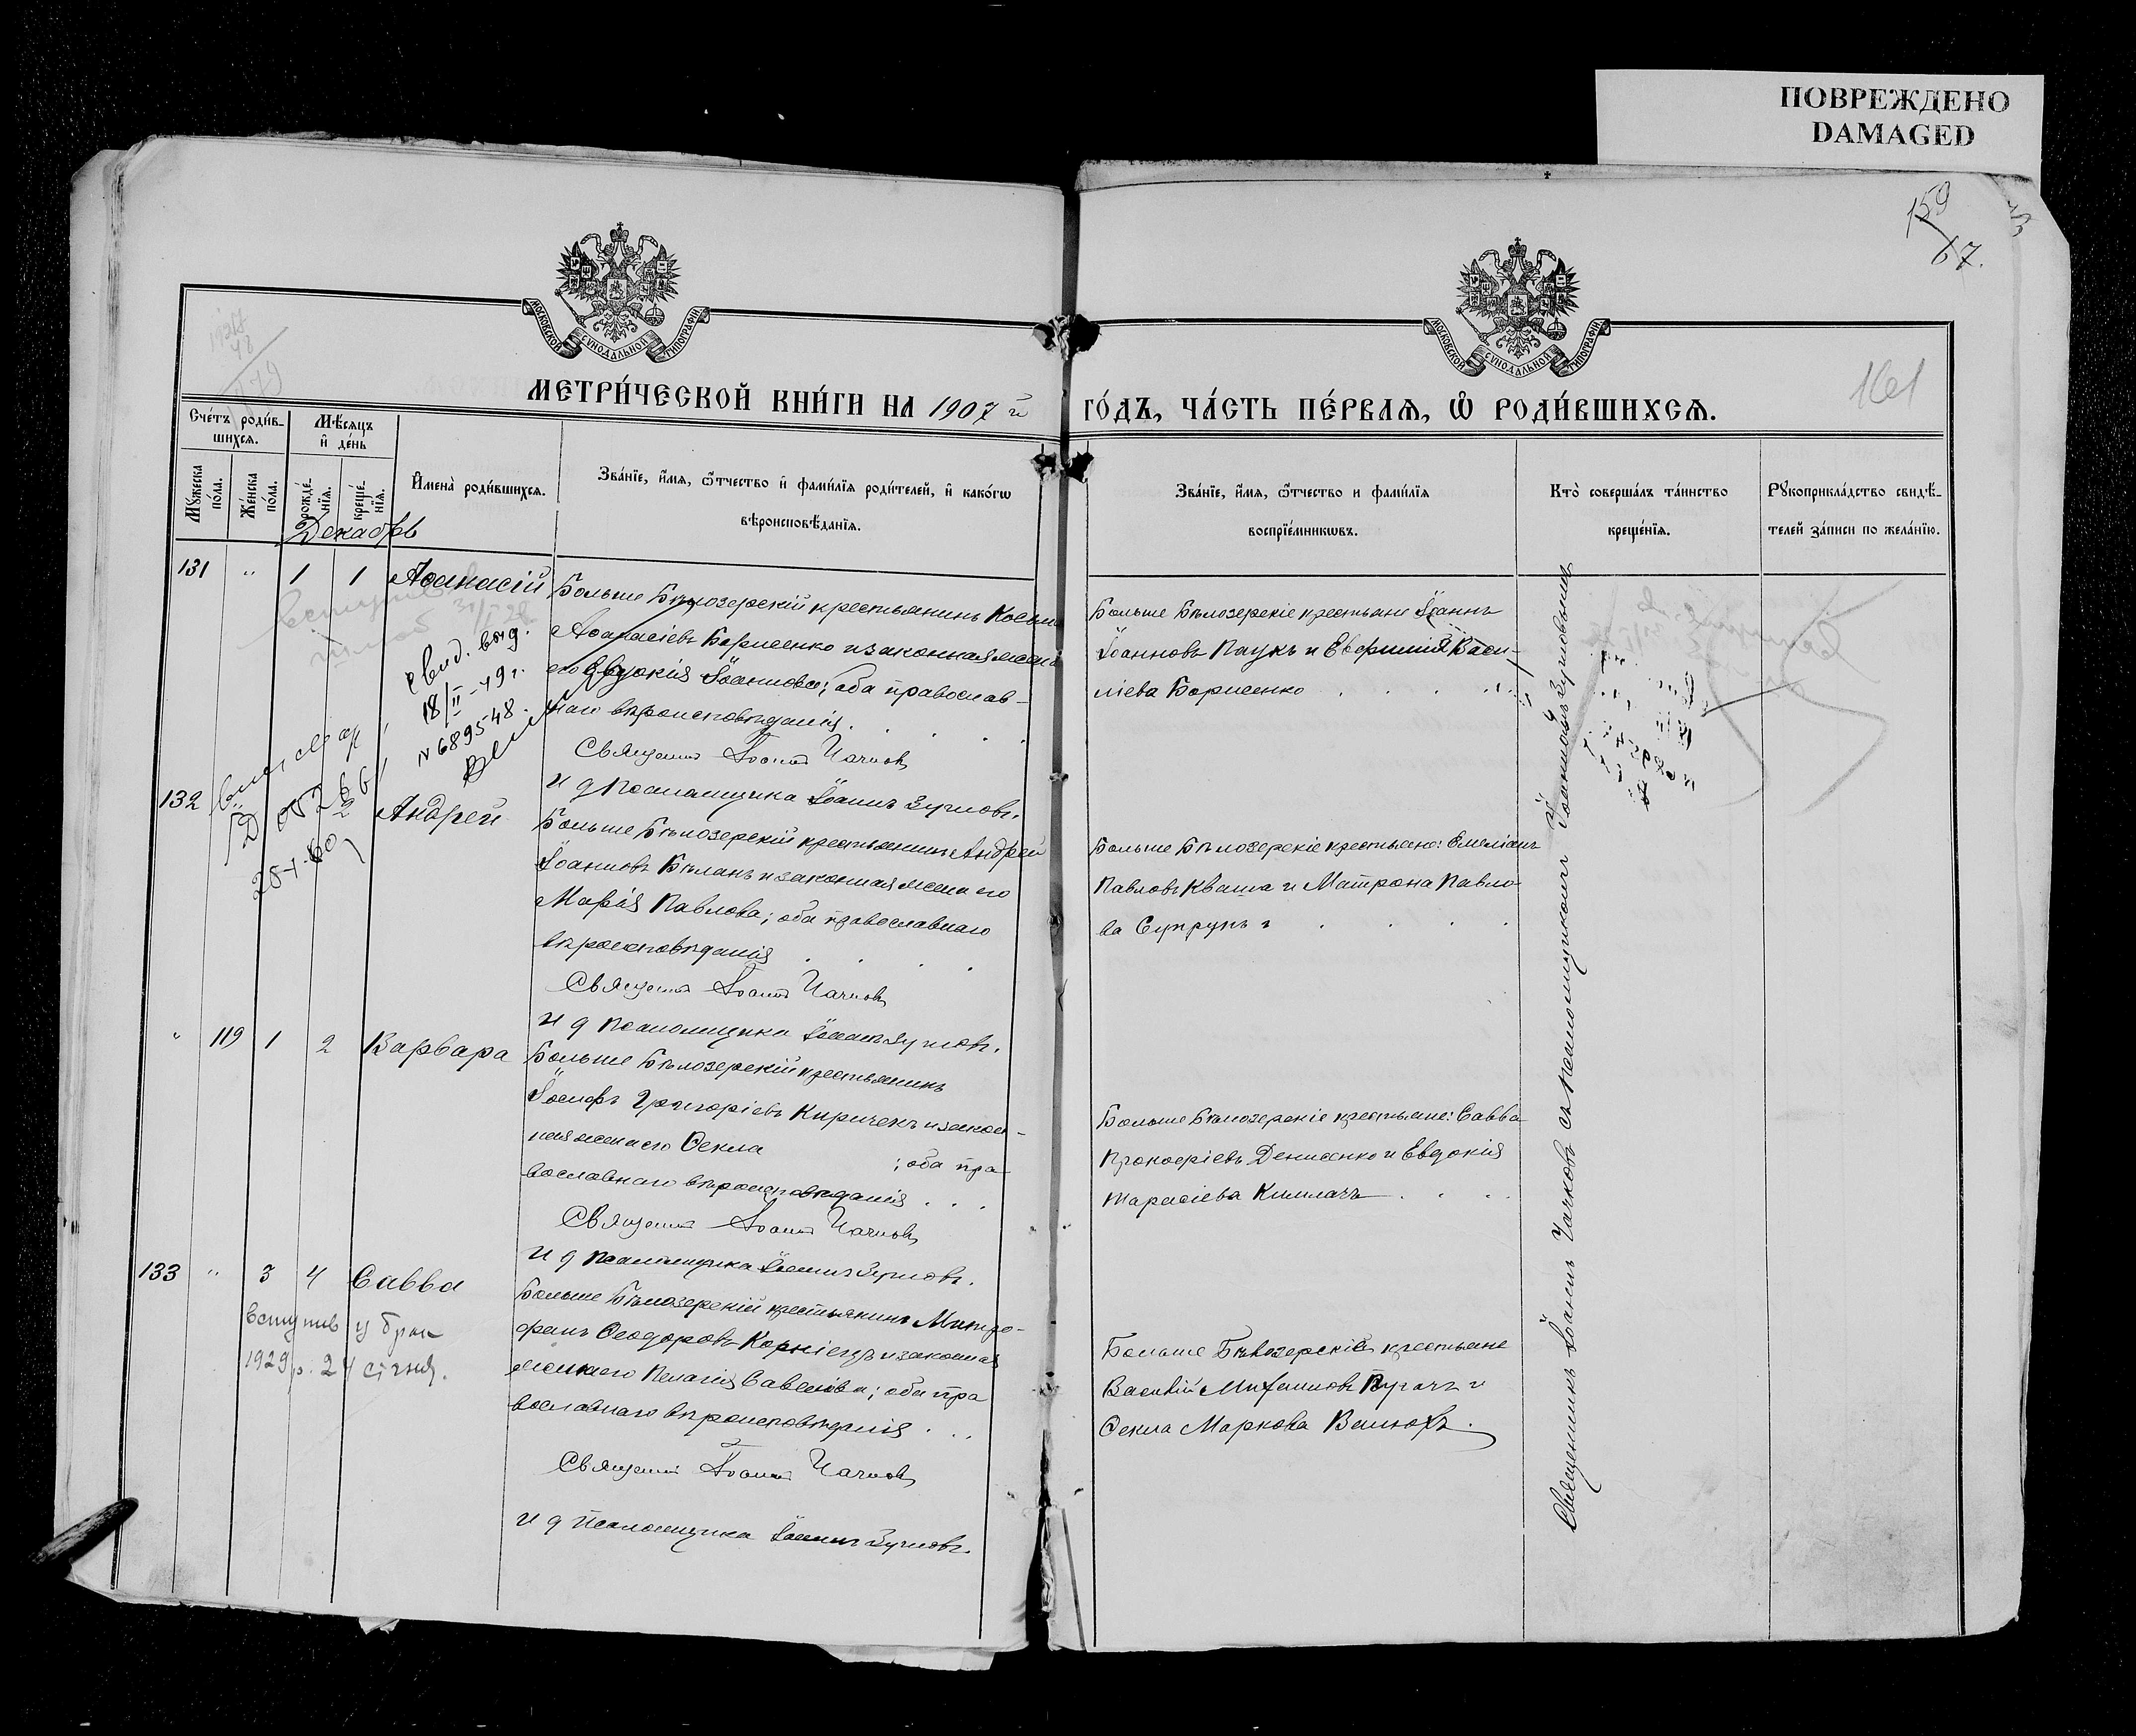 ПОВРЕЖДЕНО
DAMAGED
159
67.
161
МОСКОВСКОЙ СУНОДАЛЬНОЙ ТИПОГРАФІИ
МОСКОВСКОЙ СУНОДАЛЬНОЙ ТИПОГРАФІИ
МЕТРИ́ЧЕСКОЙ КНИ́ГИ НА 1907 й ГО́ДЪ, ЧА́СТЬ ПЕ́РВАЯ, Ѡ РОДИ́ВШИХСЯ.
Сче́тъ роди́вшихся.
Мѣ́сяцъ и де́нь
Му́жеска по́ла.
Же́нска по́ла.
рожде́нїя.
креще́нїя.
Имена̀ роди́вшихся.
Зва́нїе, и́мя, ѿтчество и фами́лїя роди́телей, и како́гѡ
вѣроисповѣ́данїя.
Зва́нїе, и́мя, ѿтчество и фами́лїя
воспрїе́мникѡвъ.
Кто̀ соверша́лъ та́инство
креще́нїя.
Рукоприкла́дство свидѣ́-
телей за́писи по жела́нїю.
Декабрь
131 " 1 1 Аѳанасій
Больше Бѣлозерскій крестьянинъ Косьма
Аѳанасіевъ Борисенко и законная жена
его Евдокія Іоаннова; оба православ-
наго вѣроисповѣданія.
Священникъ Іоаннъ Чачковъ
И д псаломщика Іоаннъ Зугловъ.
Больше Бѣлозерскіе крестьяне Іоаннъ
Іоанновъ Паукъ и Евфимія Васи-
ліева Борисенко
свид. выд.
18/II-49 г.
№ 6895-48.
25-I-60
132 " 2 Андрей
Больше Бѣлозерскій крестьянинъ Андрей
Іоанновъ Бѣланъ и законная жена его
Марія Павлова; оба православнаго
вѣроисповѣданія
Священникъ Іоаннъ Чачковъ
И д псаломщика Іоаннъ Зугловъ.
Больше Бѣлозерскіе крестьяне: Емеліанъ
Павловъ Кваша и Матрона Павло-
ва Супрунъ
" 119 1 2 Варвара
Больше Бѣлозерскій крестьянинъ
Іосифъ Григоріевъ Киричекъ и закон-
ная жена его Ѳекла ; оба пра-
вославнаго вѣроисповѣданія
Священникъ Іоаннъ Чачковъ
И д псаломщика Іоаннъ Зугловъ.
Больше Бѣлозерскіе крестьяне: Савва
Прокофіевъ Денисенко и Евдокія
Тарасіева Кишлачъ
133 " 3 4 Савва
Вступив у брак
1929 р. 24 січня.
Больше Бѣлозерскій крестьянинъ Митро-
фанъ Ѳеодоровъ Корніецъ и законная
жена его Пелагія Савелова; оба пра
вославнаго вѣроисповѣданія
Священникъ Іоаннъ Чачковъ
И д псаломщика Іоаннъ Зугловъ.
Больше Бѣлозерскіе крестьяне
Василій Михаиловъ Пугачъ и
Ѳекла Маркова
Священникъ Іоаннъ Чачковъ съ псаломщикомъ Іоанномъ Зугловымъ